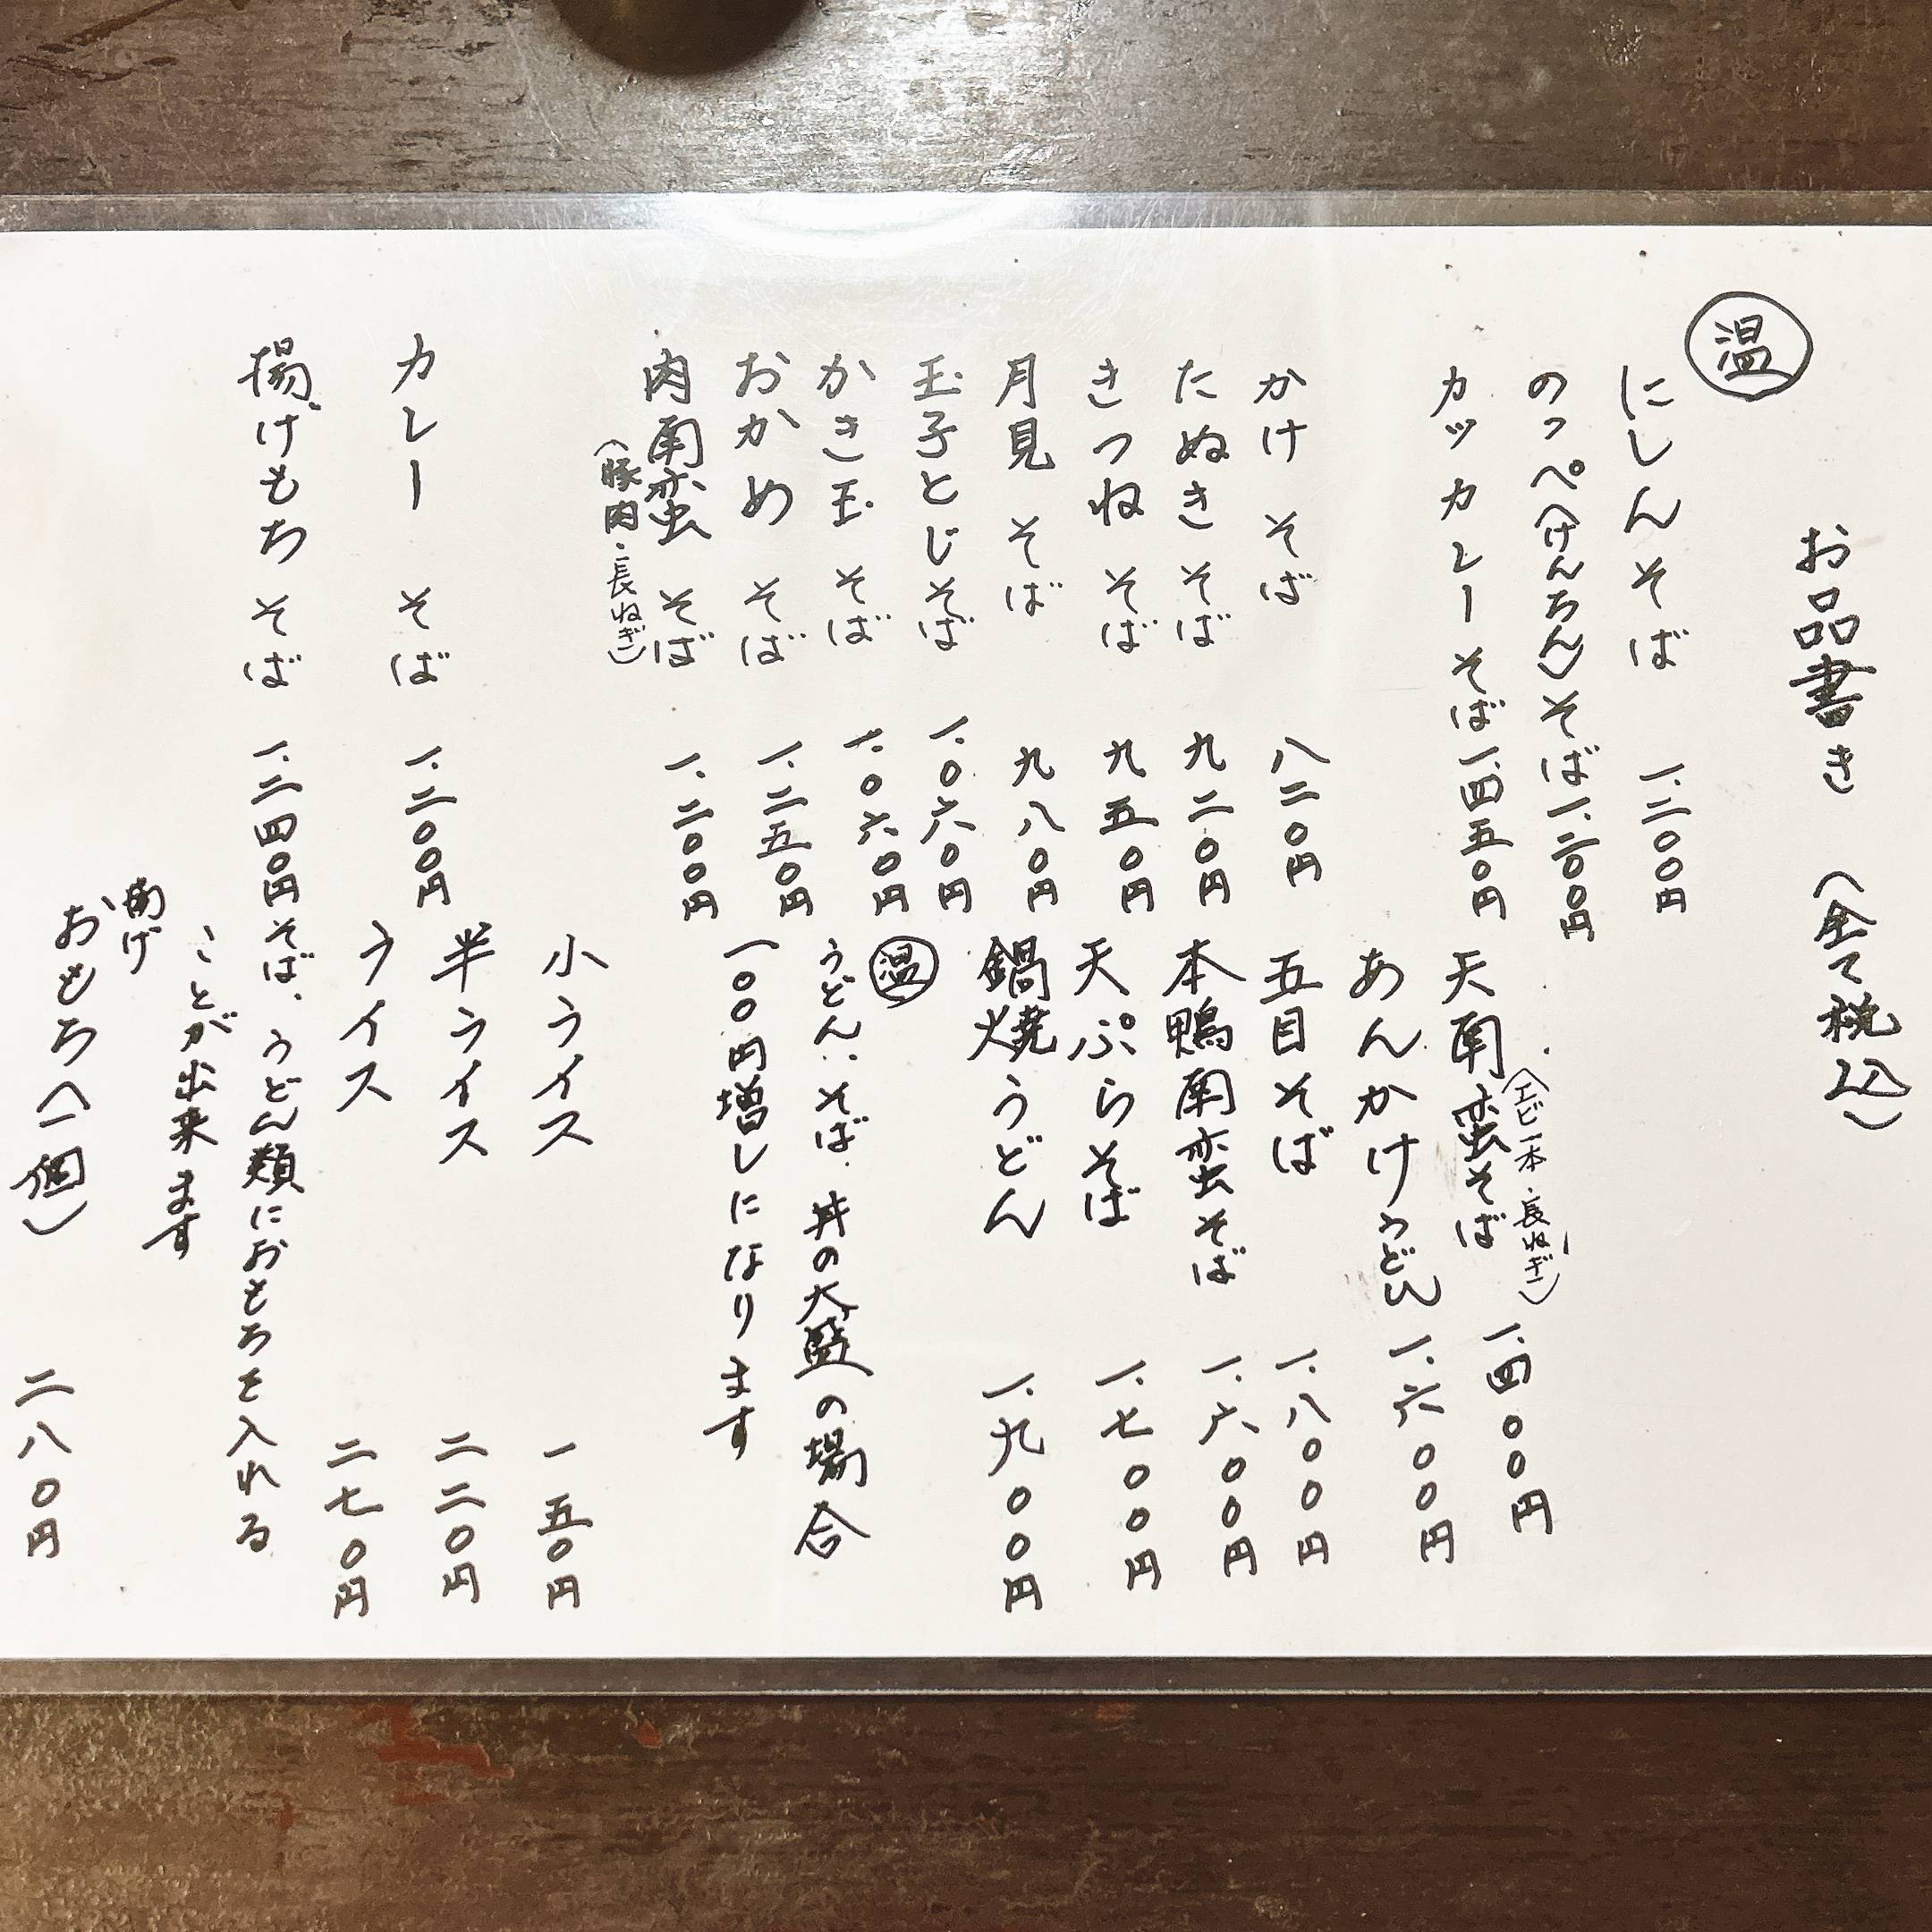 お品書き (全て税込)
温
にしんそば 一、二〇〇円
のっぺ(けんちん)そば 一、二〇〇円
カツカレーそば 一、四五〇円
かけそば 八二〇円
たぬきそば 九二〇円
きつねそば 九五〇円
月見そば 九八〇円
玉子とじそば 一、〇六〇円
かき玉そば 一、〇六〇円
おかめそば 一、二五〇円
肉南蛮そば 一、二〇〇円
(豚肉・長ねぎ)
カレーそば 一、二〇〇円
揚げもちそば 一、二四〇円
天南蛮そば 一、四〇〇円
(エビ一本・長ねぎ)
あんかけうどん 一、六〇〇円
五目そば 一、八〇〇円
本鴨南蛮そば 一、六〇〇円
天ぷらそば 一、七〇〇円
鍋焼うどん 一、九〇〇円
温
うどん、そば、丼の大盛の場合
一〇〇円増しになります
小ライス 一五〇円
半ライス 二二〇円
ライス 二七〇円
そば、うどん類におもちを入れる
ことが出来ます
揚げ
おもち(一個) 二八〇円